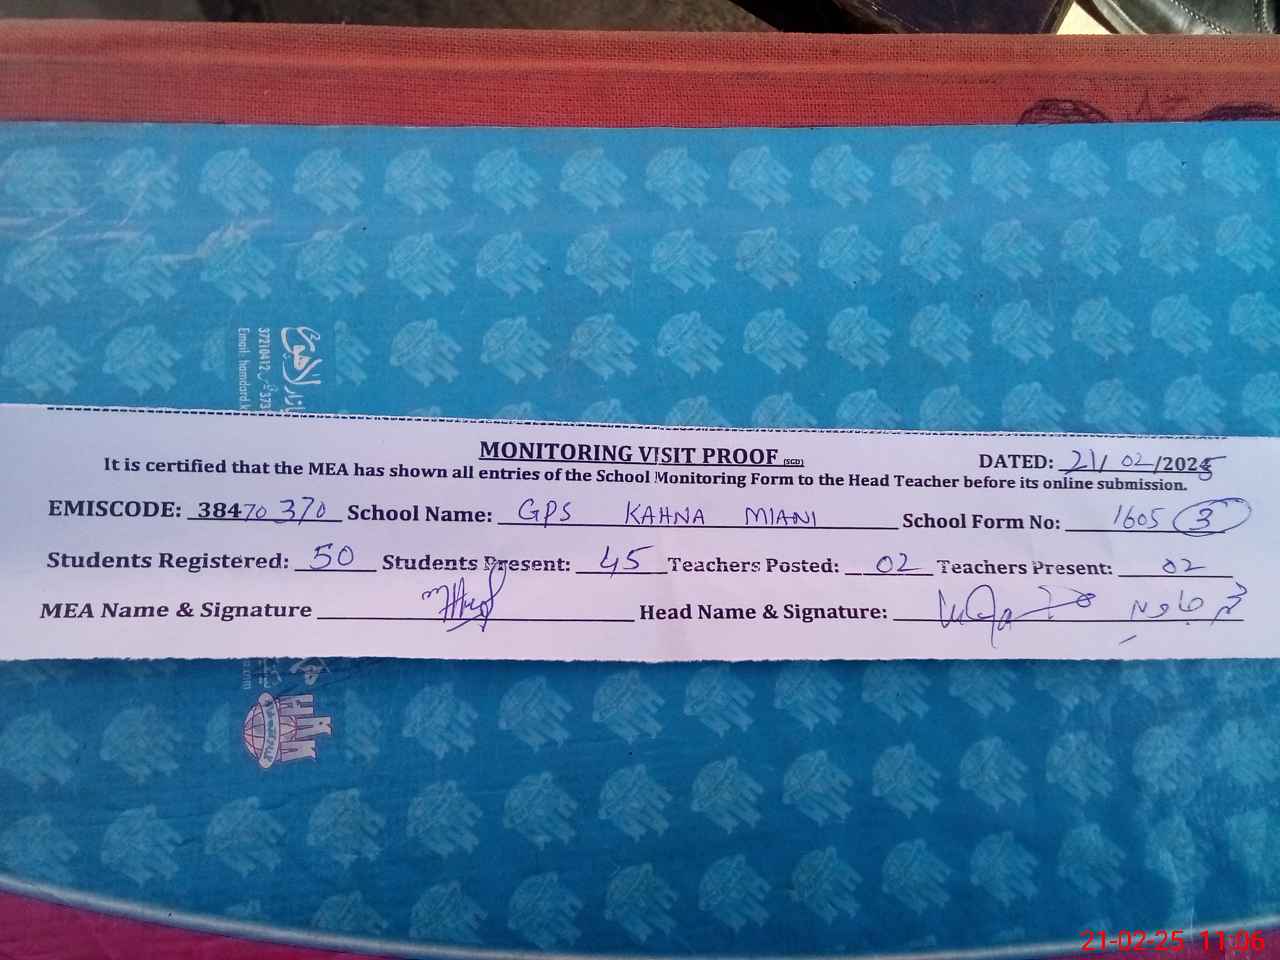 37210412
Email: hamdard.k
MONITORING VISIT PROOF (SCD)
DATED: 21/02/2025
It is certified that the MEA has shown all entries of the School Monitoring Form to the Head Teacher before its online submission.
EMISCODE: 38470370 School Name: GPS KAHNA MIANI School Form No: 1605 3
Students Registered: 50 Students Present: 45 Teachers Posted: 02 Teachers Present: 02
MEA Name & Signature Head Name & Signature:
21-02-25 11:06